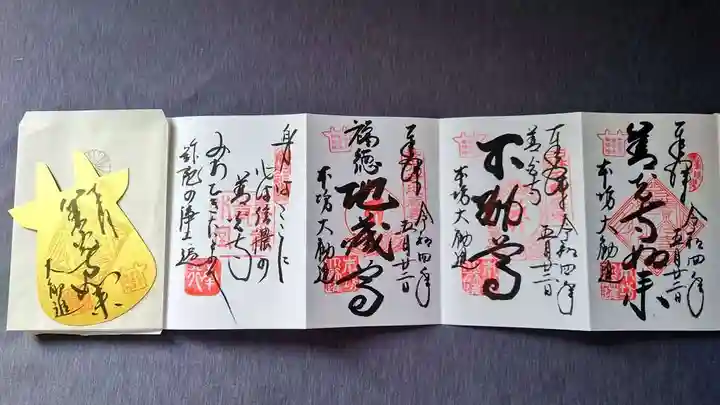 奉拝 令和四年
五月廿二日
善光寺如来
本坊 大勧進
奉拝 令和四年
善光寺 五月廿二日
不動尊
本坊 大勧進
奉拝 令和四年
五月廿二日
福徳 地蔵尊
本坊 大勧進
身はここに
心は信濃の
善光寺
みちびきたまへ
弥陀の浄土へ
善光寺如来
大勧進